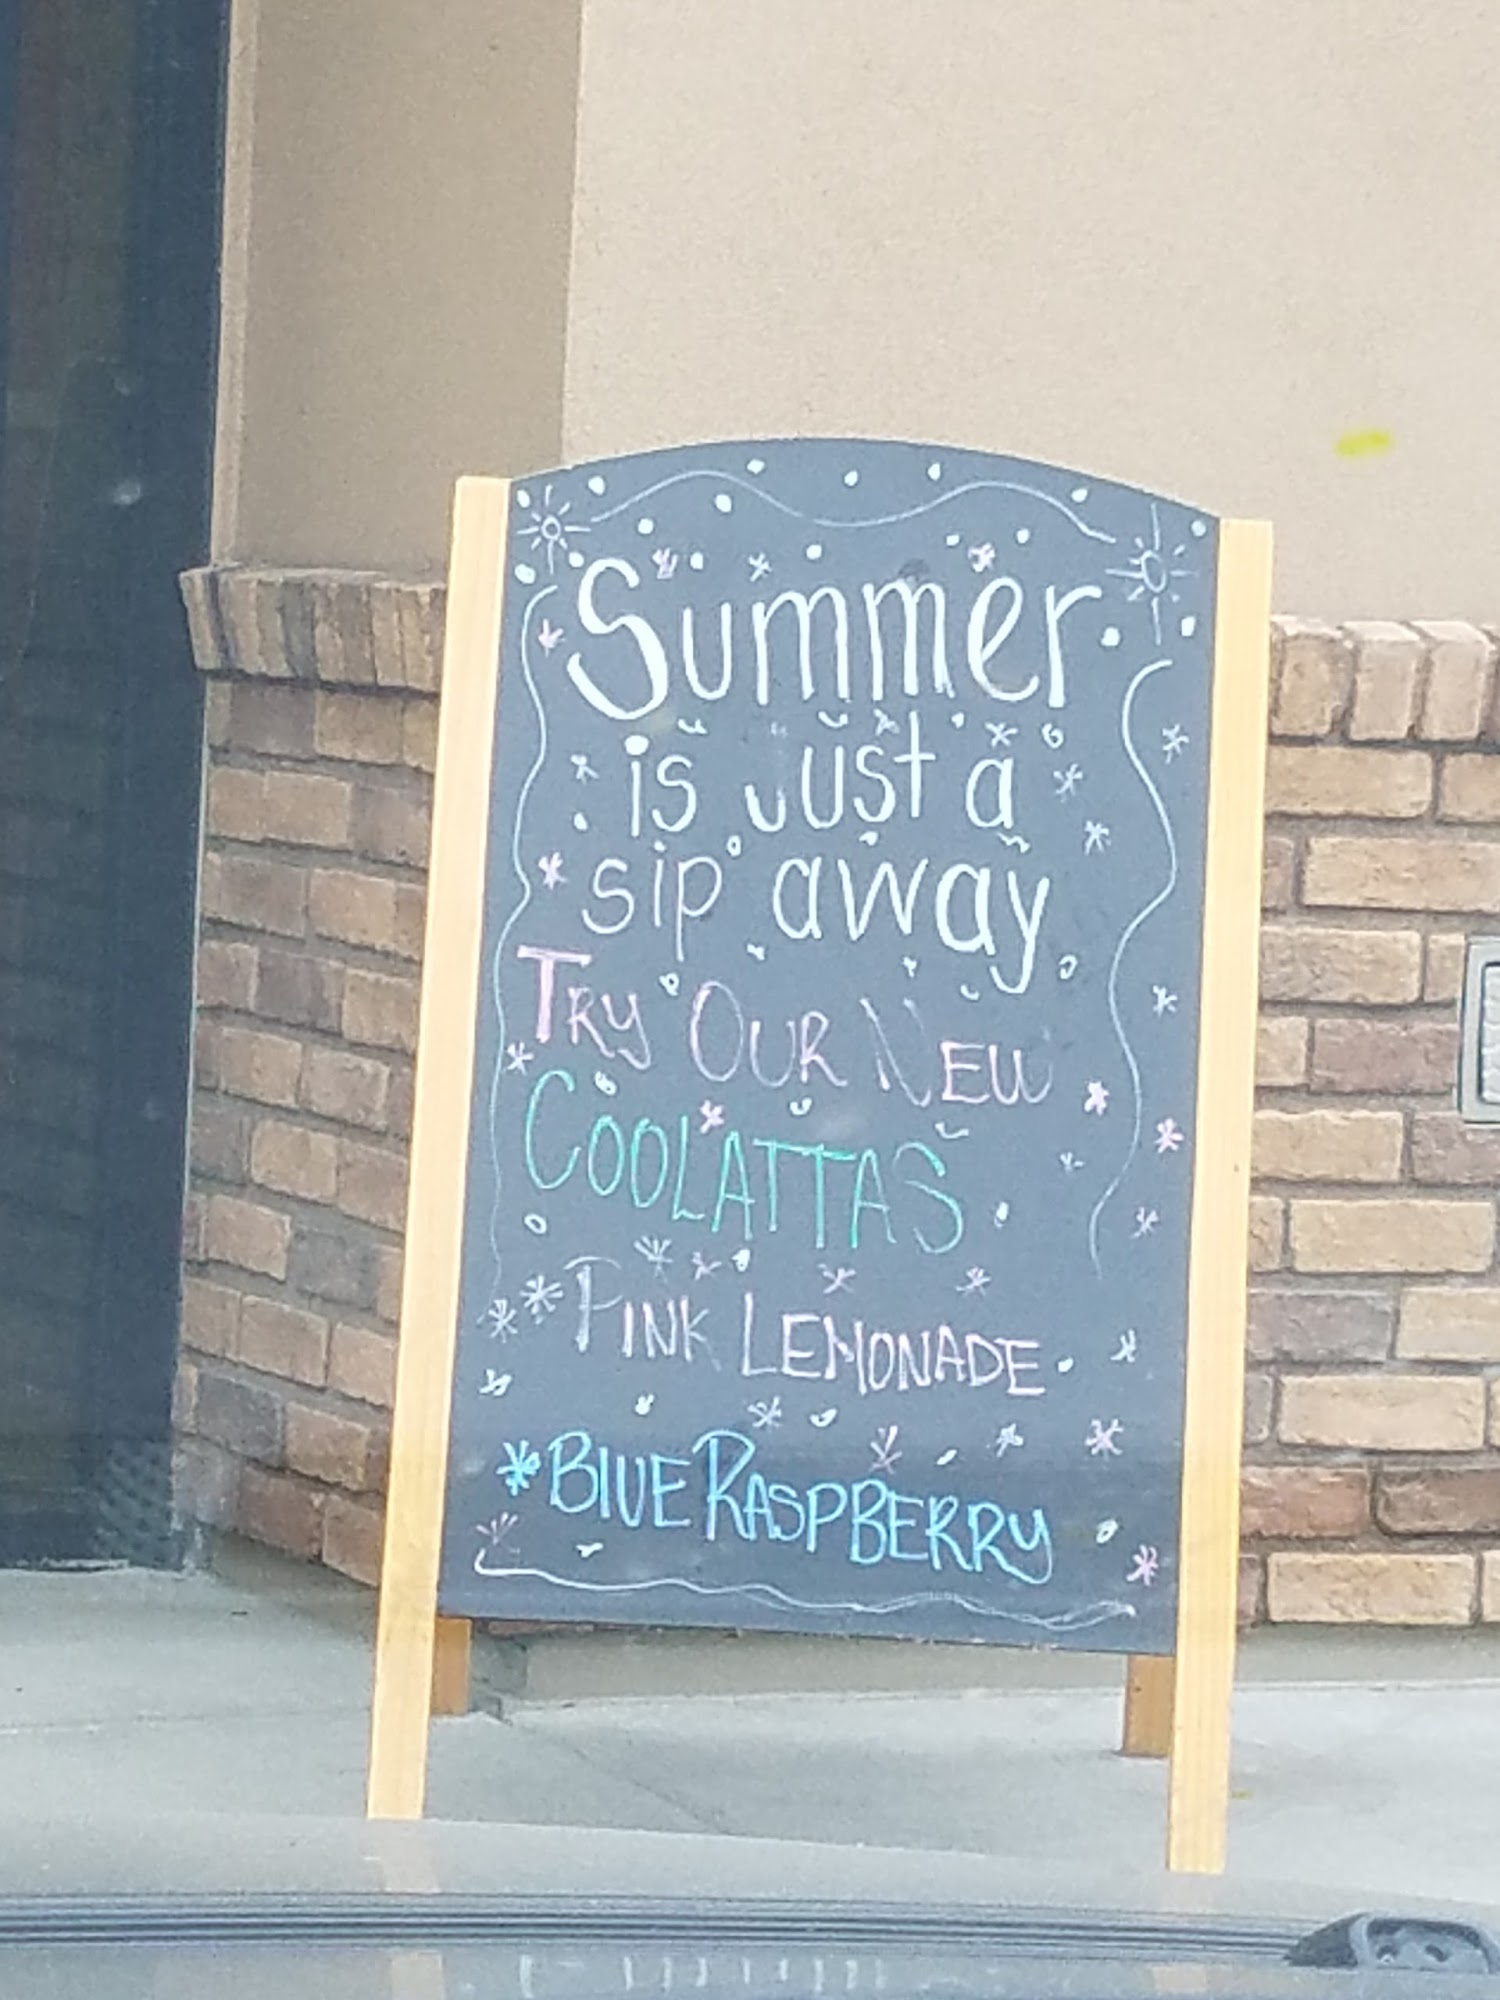 Summer
is Just a
sip away
TRY OUR NEW
COOLATTAS
* PINK LEMONADE
* BLUE RASPBERRY